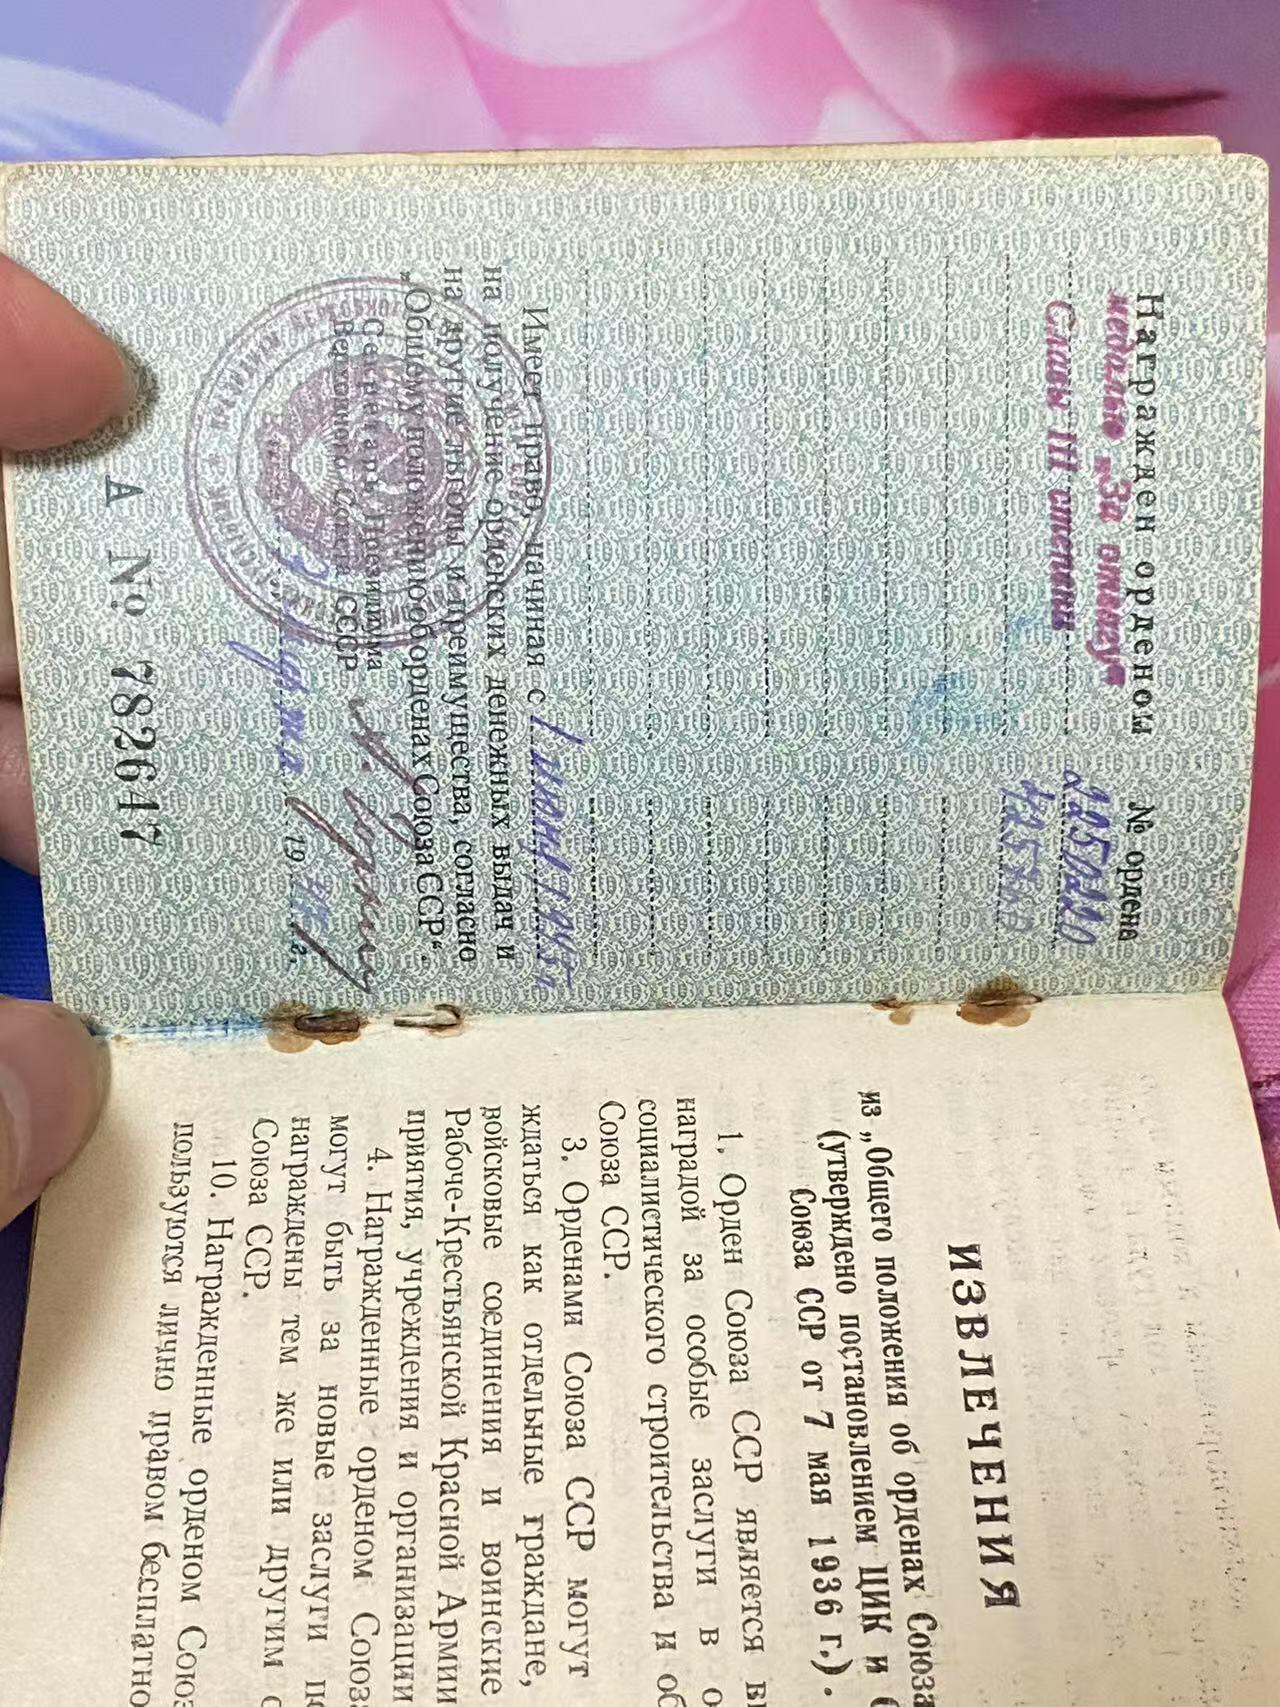 Награжден орденом № ордена
медалью „За отвагу" 2250220
Славы III степени
Имеет право, начиная с 1 июня 1945
на получение орденских денежных выдач и
на другие льготы и преимущества, согласно
„Общему положению об орденах Союза ССР“.
Секретарь Президиума
Верховного Совета СССР
марта 19 г.
А № 782647
ИЗВЛЕЧЕНИЯ
из „Общего положения об орденах Союза
(утверждено постановлением ЦИК и
Союза ССР от 7 мая 1936 г.).
1. Орден Союза ССР является
наградой за особые заслуги в
социалистического строительства и об
Союза ССР.
3. Орденами Союза ССР могут
ждаться как отдельные граждане,
войсковые соединения и воинские
Рабоче-Крестьянской Красной Армии
приятия, учреждения и организации
4. Награжденные орденом Союза
могут быть за новые заслуги п
награждены тем же или другим о
Союза ССР.
10. Награжденные орденом Союз
пользуются лично правом бесплатно